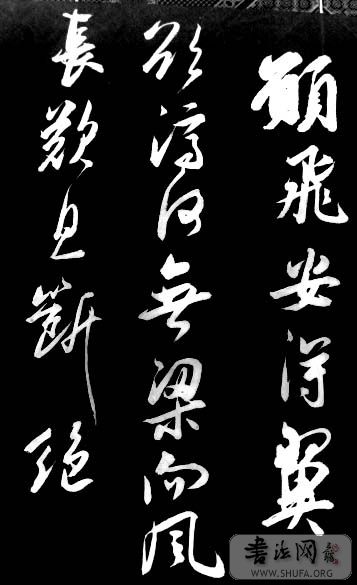 願飛安得翼
欲濟河無梁向風
長歎息斷絕
書法网
WWW.SHUFA.ORG